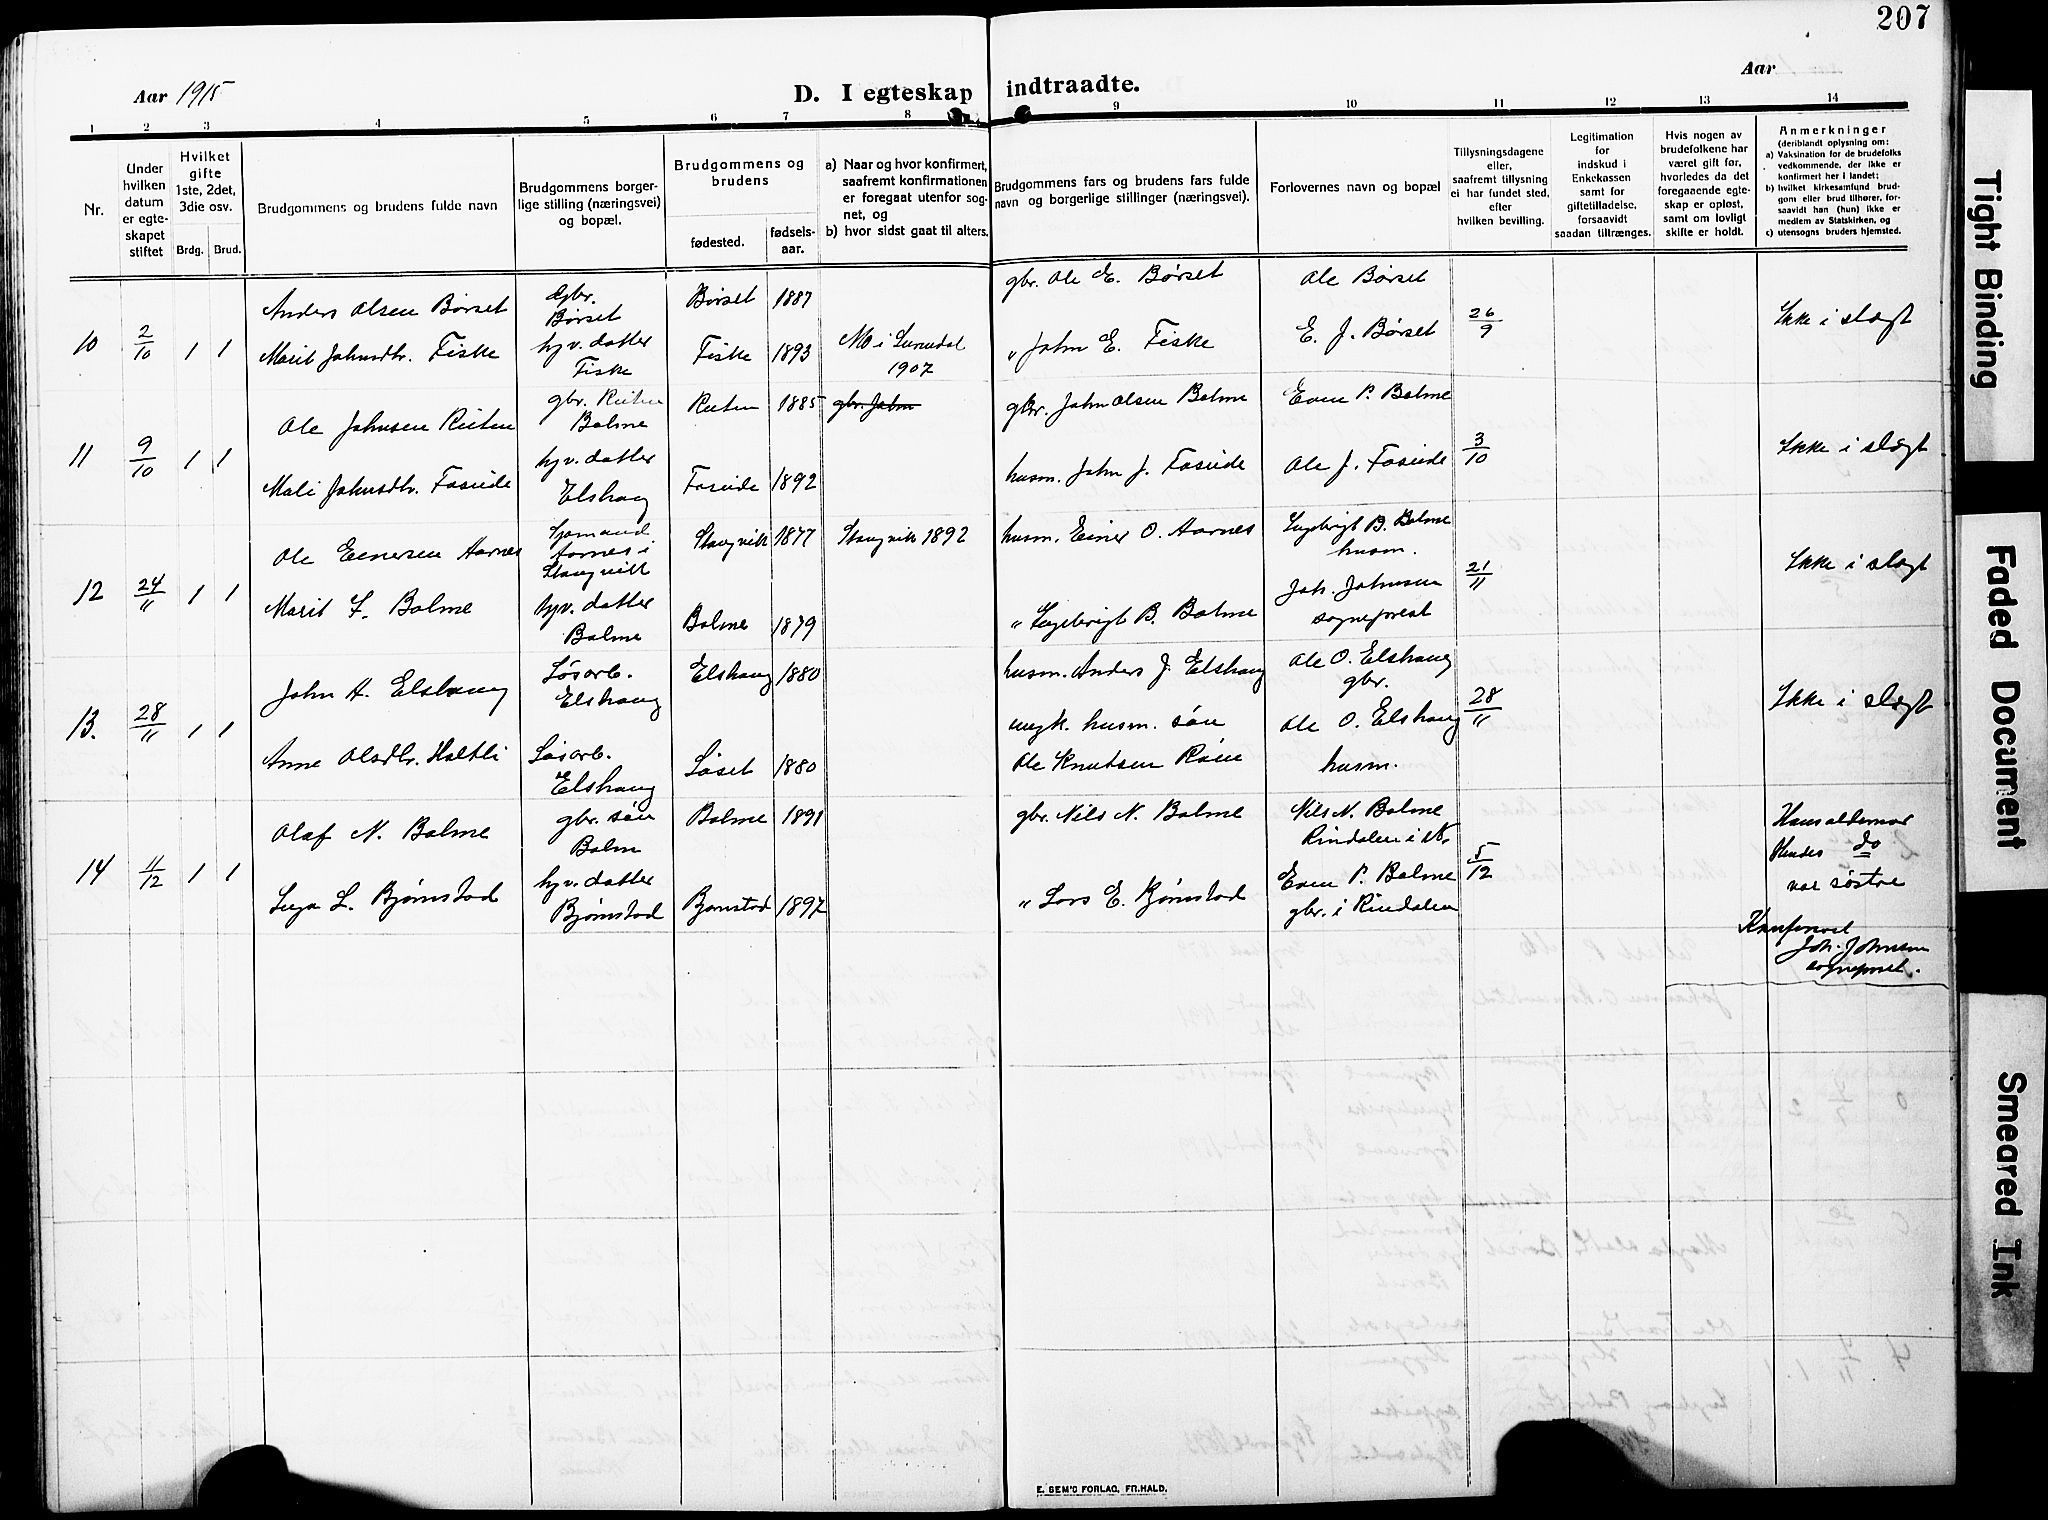 207
Aar 1915
D. I egteskap indtraadte.
Aar
1 2 3 4 5 6 7 8 9 10 11 12 13 14
Nr.
Under
hvilken
datum
er egte-
skapet
stiftet
Hvilket
gifte
1ste, 2det,
3die osv.
Brdg. Brud.
Brudgommens og brudens fulde navn
Brudgommens borger-
lige stilling (næringsvei)
og bopæl.
Brudgommens og
brudens
fødested.
fødsels-
aar.
a) Naar og hvor konfirmert,
saafremt konfirmationen
er foregaat utenfor sog-
net, og
b) hvor sidst gaat til alters.
Brudgommens fars og brudens fars fulde
navn og borgerlige stillinger (næringsvei).
Forlovernes navn og bopæl
Tillysningsdagene
eller,
saafremt tillysning
ei har fundet sted,
efter
hvilken bevilling.
Legitimation
for
indskud i
Enkekassen
samt for
giftetilladelse,
forsaavidt
saadan tiltrænges.
Hvis nogen av
brudefolkene har
været gift før,
hvorledes da det
foregaaende egte-
skap er opløst,
samt om lovligt
skifte er holdt.
Anmerkninger
(deriblandt oplysning om:
a) Vaksination for de brudefolks
vedkommende, der ikke er
konfirmert her i landet;
b) hvilket kirkesamfund brud-
gom eller brud tilhører, for-
saavidt han (hun) ikke er
medlem av Statskirken, og
c) utensogns bruders hjemsted.
10 2/10 1 1
Anders Olsen Børset
Gbr.
Børset
Børset 1887
gbr. Ole E. Børset
Ole Børset
26/9
Ikke i slægt
Marit Johnsdtr. Fiske
hjv. datter
Fiske
Fiske 1893
Mo i Surendal
1907
" John E. Fiske
E. J. Børset
11 9/10 1 1
Ole Johnsen Rieten
gbr. Rieten
Bolme
Rieten 1885
gbr. John
gbr. John Olsen Bolme
Even P. Bolme
3/10
Ikke i slægt
Mali Johnsdtr. Foseide
hjv. datter
Elshaug
Foseide 1892
husm. John J. Foseide
Ole J. Foseide
12 24/11 1 1
Ole Einersen Aarnes
Sjømand
Aarnes i
Stangvik
Stangvik 1877
Stangvik 1892
husm. Einer O. Aarnes
Ingebrigt B. Bolme
husm.
21/11
Ikke i slægt
Marit I. Bolme
hjv. datter
Bolme
Bolme 1879
" Ingebrigt B. Bolme
Joh. Johnsen
sogneprest
13. 28/11 1 1
John A. Elshaug
Løsarb.
Elshaug
Elshaug 1880
husm. Anders J. Elshaug
Ole O. Elshaug
gbr.
28/11
Ikke i slægt
Anne Olsdtr. Holtli
Løsarb.
Elshaug
Løset 1880
ungk. husm. søn
Ole Knutsen Røen
Ole O. Elshaug
husm.
14 11/12 1 1
Olaf N. Bolme
gbr. søn
Bolm
Bolme 1891
gbr. Nils N. Bolme
Nils N. Bolme
Rindalen i N.
5/12
Hans oldemor
Hendes do
var søstre
Inga L. Bjørnstad
hjv. datter
Bjørnstad
Bjørnstad 1897
" Lars E. Bjørnstad
Even P. Bolme
gbr. i Rindalen
Konfereret
Joh. Johnsen
sogneprest.
E. SEM'S FORLAG, FR.HALD.
Tight Binding
Faded Document
Smeared Ink